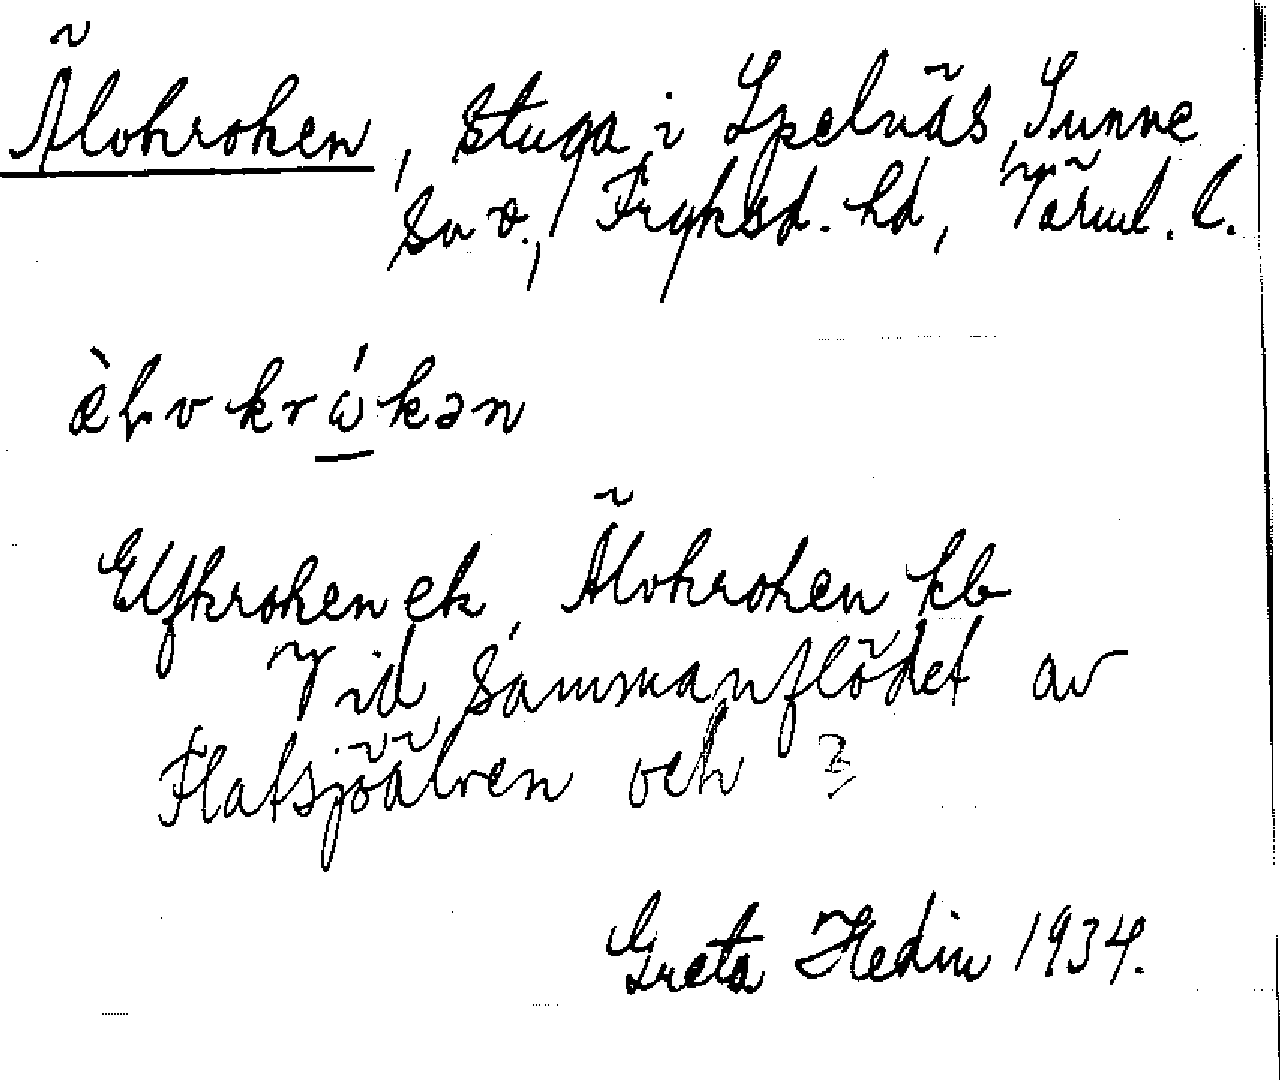 Älvkroken, stuga i Spelnäs, Sunne
sn o., Fryksd. hd, Värml. l.
æ̀lvkrώkən
Elfkroken ek, Älvkroken kb
Vid sammanflödet av
Flatsjöälven och ?
Greta Hedin 1934.